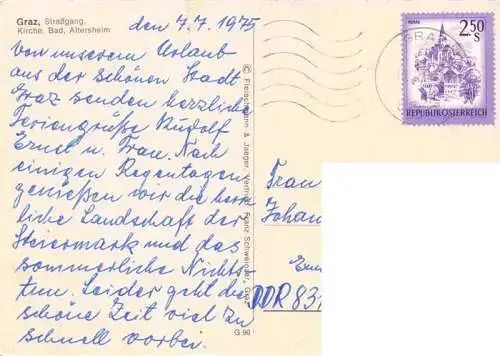 Graz, Straßgang,
Kirche, Bad, Altersheim
den 7.7.1975
Von unserem Urlaub
aus der schönen Stadt
Graz senden herzliche
Feriengrüße Rudolf
Ernst u. Frau. Nach
einigen Regentagen
genießen wir die herr
liche Landschaft der
Steiermark und das
sommerliche Nichts-
tun. Leider geht die
schöne Zeit viel zu
schnell vorbei.
© Fleischmann & Jaeger, Vertrieb: Franz Schweinzer, Graz
G 90
2.50
S
REPUBLIK ÖSTERREICH
GRAZ
Frau
Johan
DDR 83